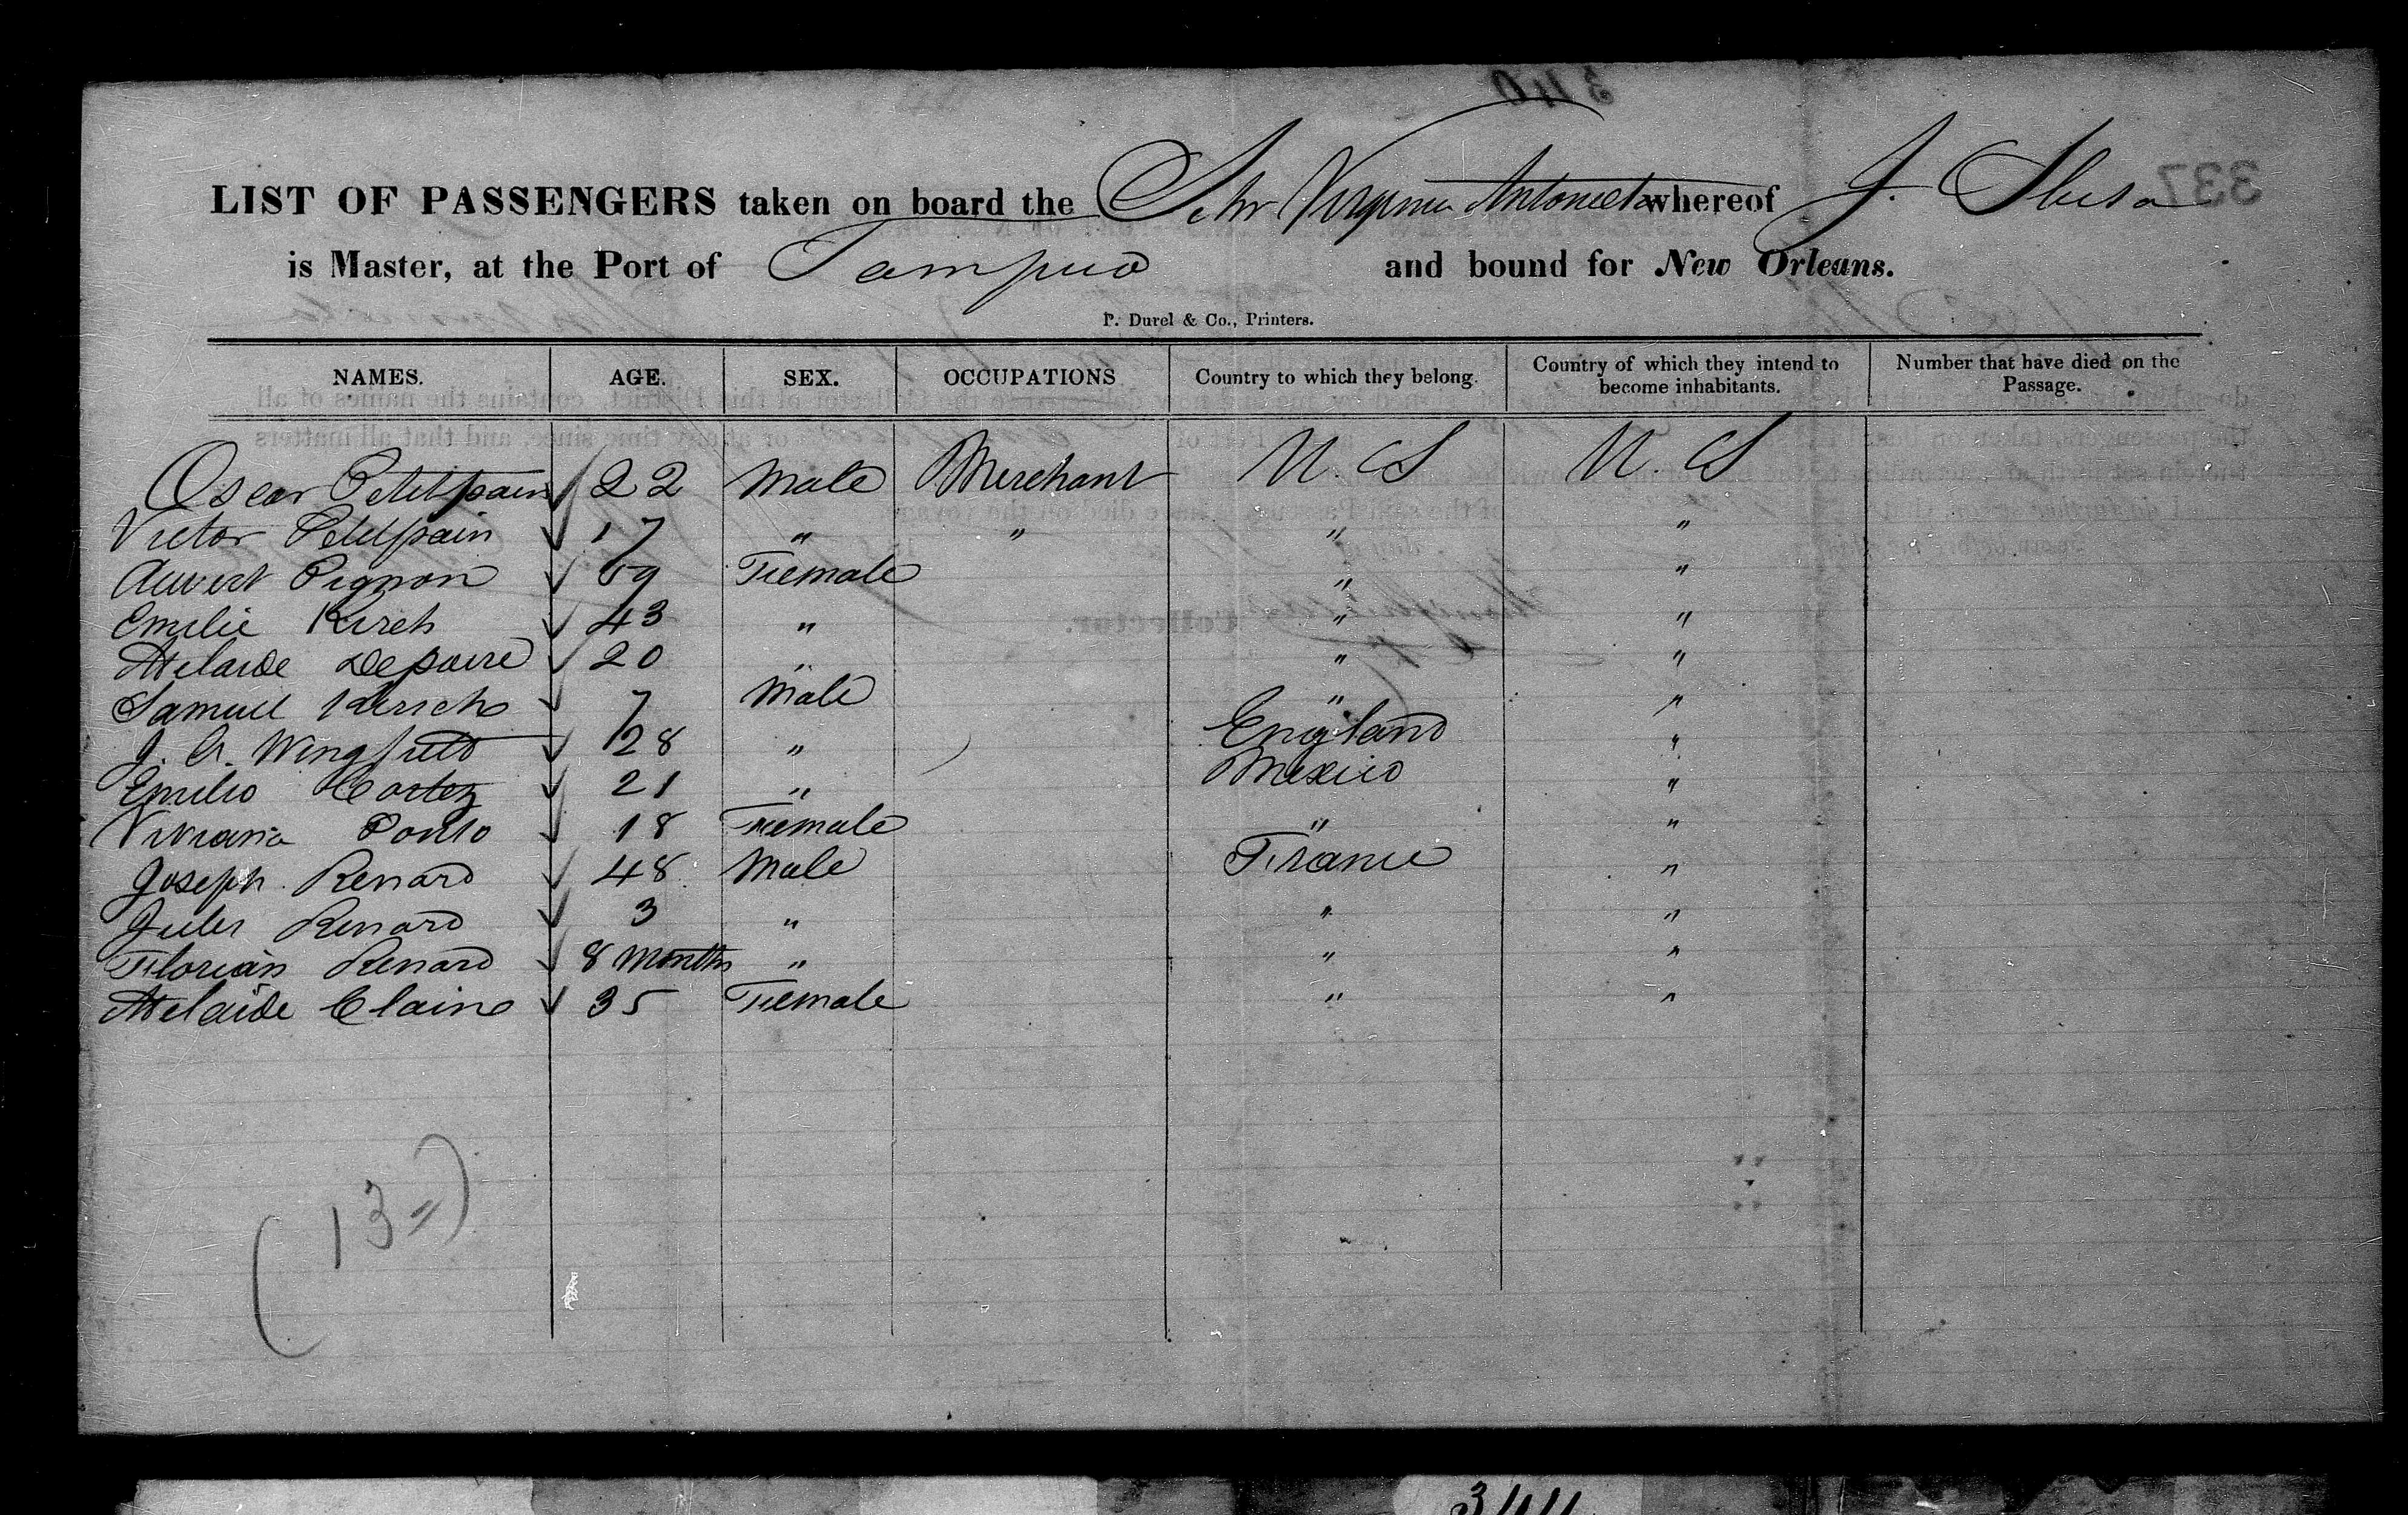 340
337
LIST OF PASSENGERS taken on board the Schr Virginia Antonieta whereof J.
is Master, at the Port of Tampico and bound for New Orleans.
P. Durel & Co., Printers.
NAMES. AGE. SEX. OCCUPATIONS Country to which they belong. Country of which they intend to become inhabitants. Number that have died on the Passage.
Oscar Petitpain 22 Male Merchant U. S U. S
Victor Petitpain 17 " " " "
Pignon 59 Female " "
Emilie Kirch 43 " " "
Adelaide Depoire 20 " " "
Samuel Kirsch 7 Male " "
J. A. Wingfield 28 " England "
Emilio Cortez 21 " Mexico "
Viviana Ponto 18 Female " "
Joseph Renard 48 Male France "
Jules Renard 3 " " "
Florian Renard 8 Months " " "
Adelaide Claine 35 Female " "
(13)